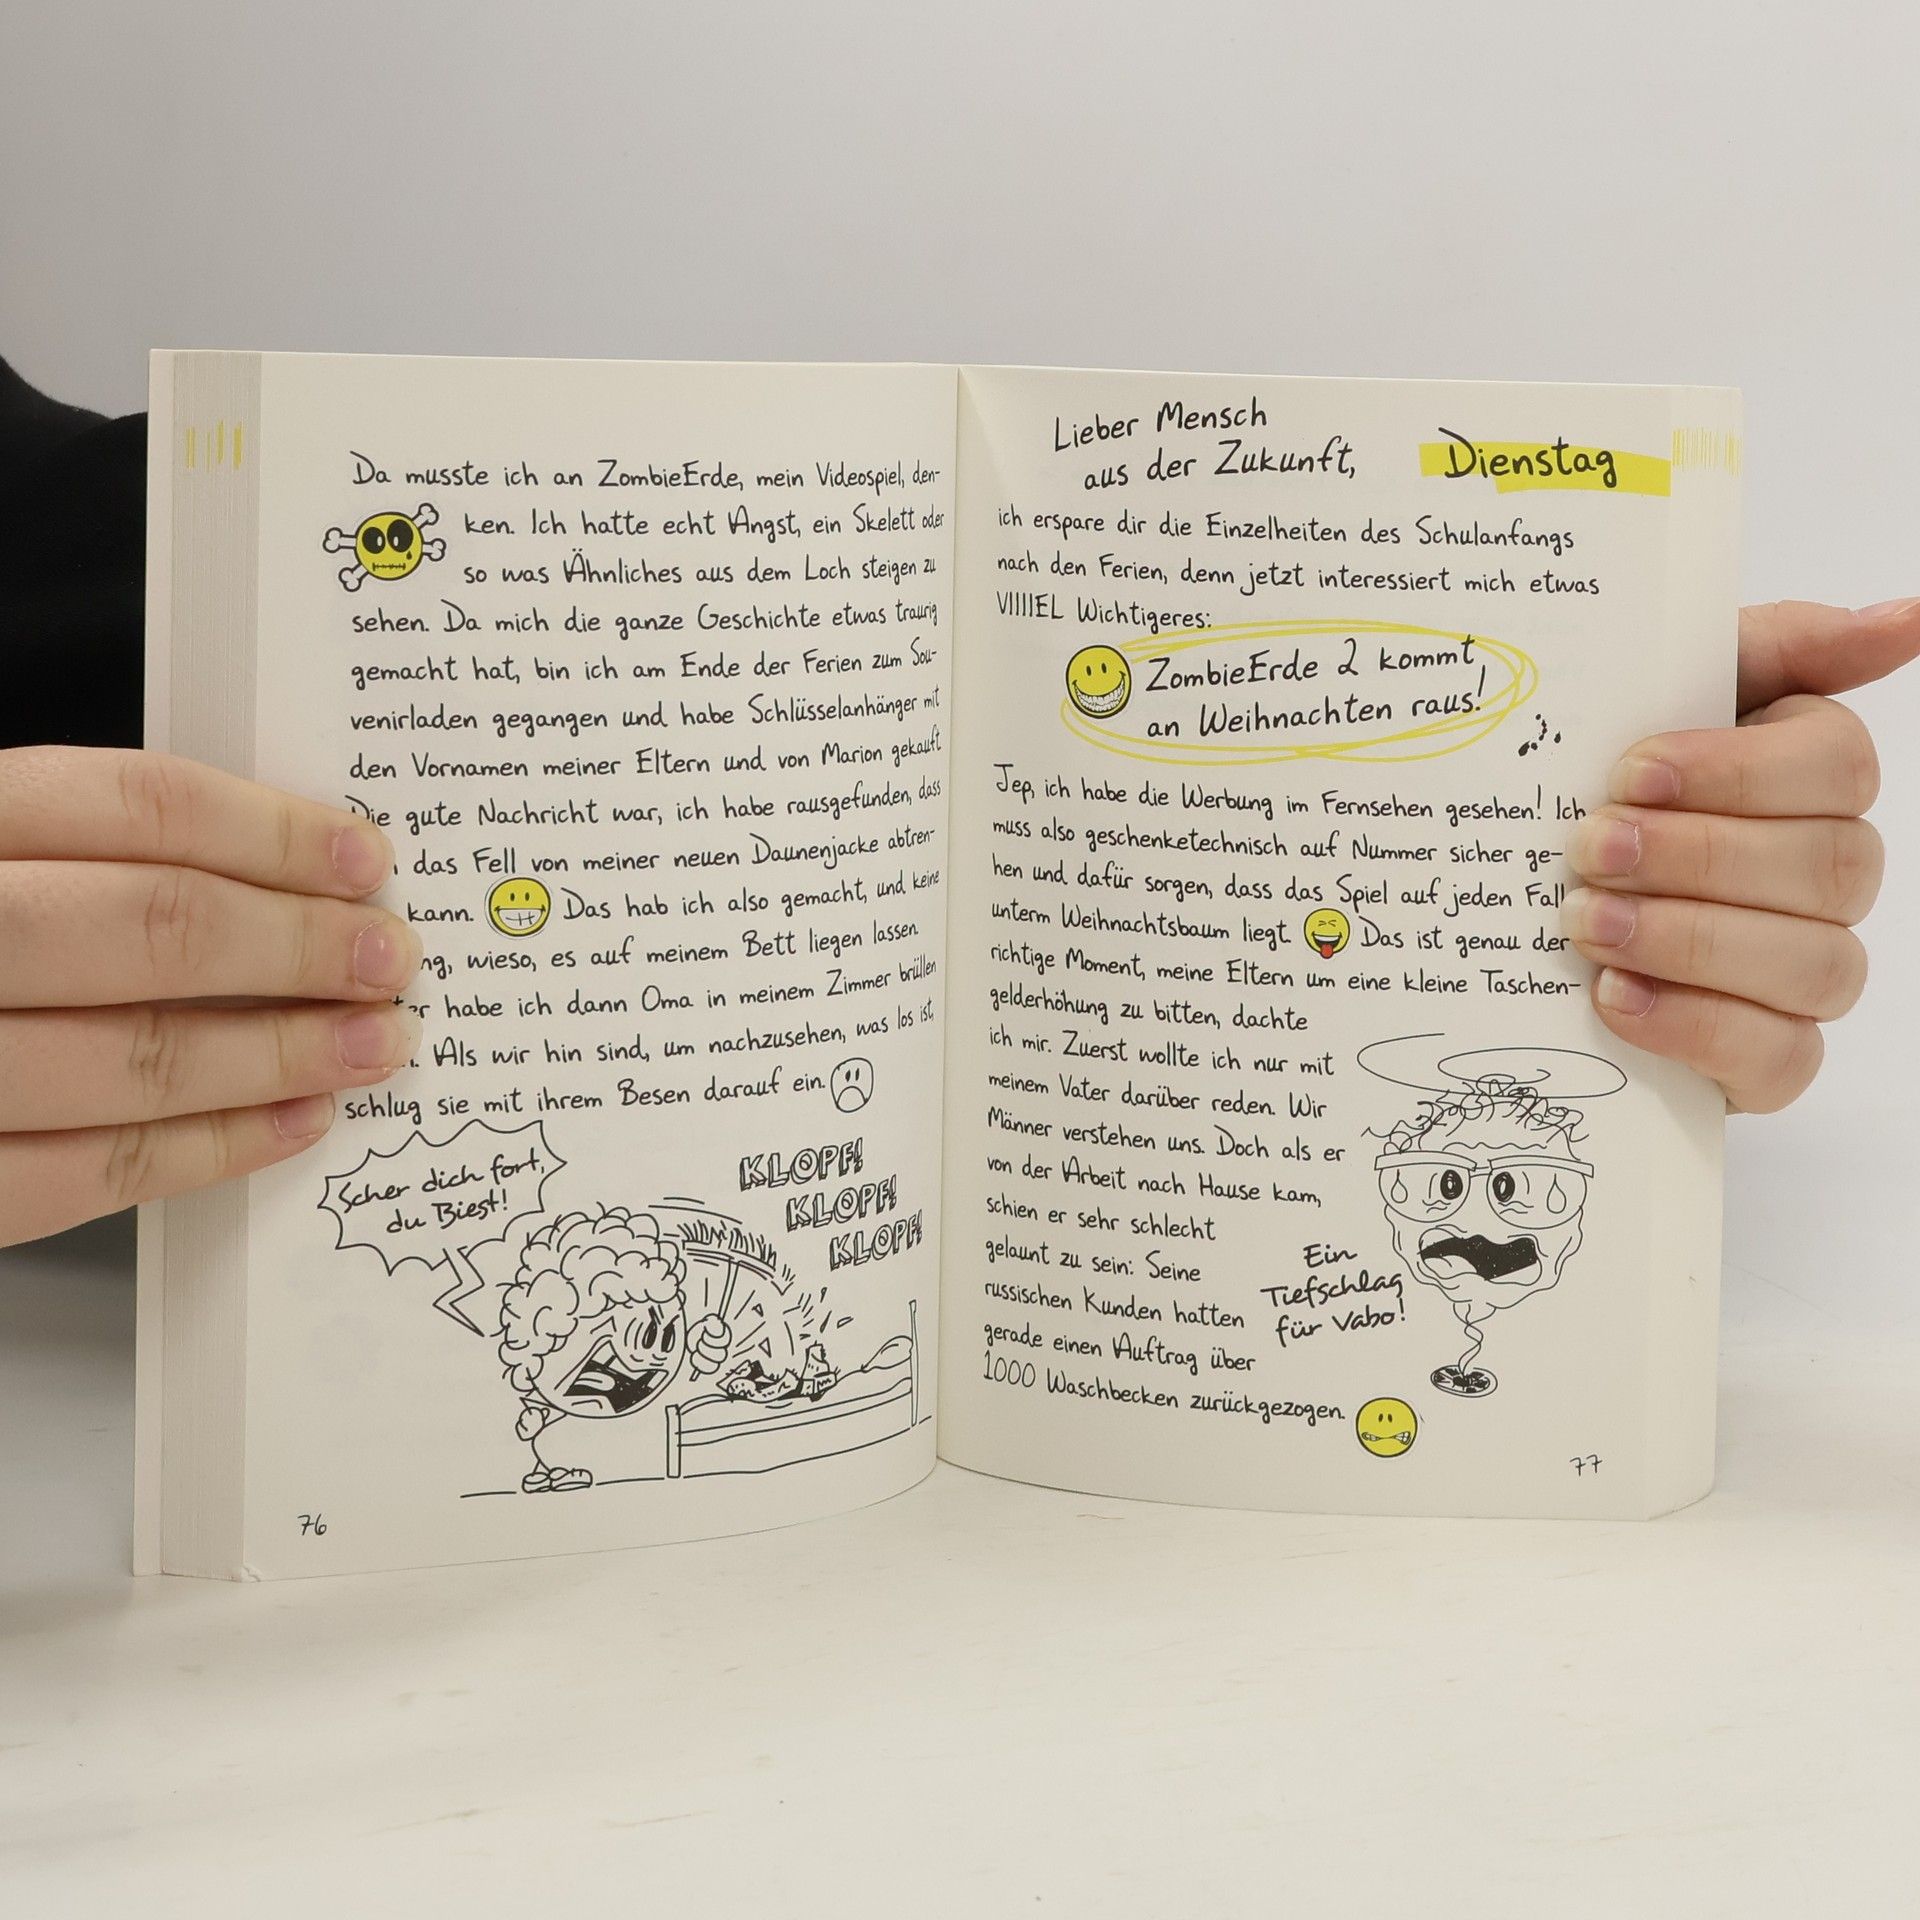 Da musste ich an ZombieErde, mein Videospiel, den-
ken. Ich hatte echt Angst, ein Skelett oder
so was Ähnliches aus dem Loch steigen zu
sehen. Da mich die ganze Geschichte etwas traurig
gemacht hat, bin ich am Ende der Ferien zum Sou-
venirladen gegangen und habe Schlüsselanhänger mit
den Vornamen meiner Eltern und von Marion gekauft
Die gute Nachricht war, ich habe rausgefunden, dass
das Fell von meiner neuen Daunenjacke abtren-
kann. Das hab ich also gemacht, und keine
wieso, es auf meinem Bett liegen lassen.
habe ich dann Oma in meinem Zimmer brüllen
Als wir hin sind, um nachzusehen, was los ist,
schlug sie mit ihrem Besen darauf ein.
Scher dich fort,
du Biest!
KLOPF!
KLOPF!
KLOPF!
76
Lieber Mensch
aus der Zukunft,
Dienstag
ich erspare dir die Einzelheiten des Schulanfangs
nach den Ferien, denn jetzt interessiert mich etwas
VIIIIEL Wichtigeres:
ZombieErde 2 kommt
an Weihnachten raus!
Jep, ich habe die Werbung im Fernsehen gesehen! Ich
muss also geschenketechnisch auf Nummer sicher ge-
hen und dafür sorgen, dass das Spiel auf jeden Fall
unterm Weihnachtsbaum liegt. Das ist genau der
richtige Moment, meine Eltern um eine kleine Taschen-
gelderhöhung zu bitten, dachte
ich mir. Zuerst wollte ich nur mit
meinem Vater darüber reden. Wir
Männer verstehen uns. Doch als er
von der Arbeit nach Hause kam,
schien er sehr schlecht
gelaunt zu sein: Seine
russischen Kunden hatten
gerade einen Auftrag über
1000 Waschbecken zurückgezogen.
Ein
Tiefschlag
für Vabo!
77